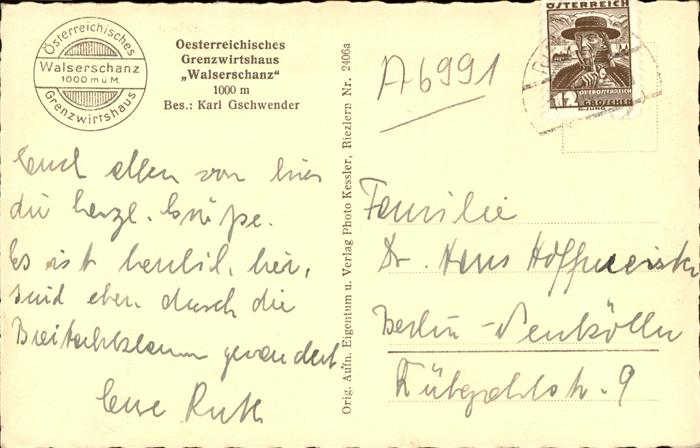 Österreichisches
Walserschanz
1000 m ü M.
Grenzwirtshaus
Oesterreichisches
Grenzwirtshaus
„Walserschanz"
1000 m
Bes.: Karl Gschwender
Euch allen von hier
die herzl. Grüße.
Es ist herrlich hier,
sind eben durch die
Breitachklamm gewandert
Eure Ruth
Orig. Aufn. Eigentum u. Verlag Photo Kessler, Riezlern Nr. 2406a
A6991
ÖSTERREICH
12
OBERÖSTERREICH
GROSCHEN
Familie
Dr. Hans Hoffmeister
Berlin-Neukölln
Rübezahlstr. 9